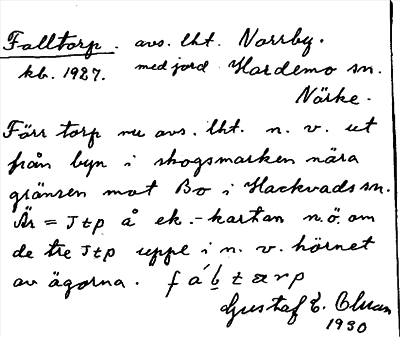 Falltorp. avs. lht. Norrby.
kb. 1927. med jord Hardemo sn.
Närke.
Förr torp nu avs. lht. n. v. ut
från byn i skogsmarken nära
gränsen mot Bo i Hackvads sn.
Är = Jtp å ek.-kartan n.ö. om
de tre Jtp uppe i n. v. hörnet
av ägorna. fáḅtærp
Gustaf E.
1930